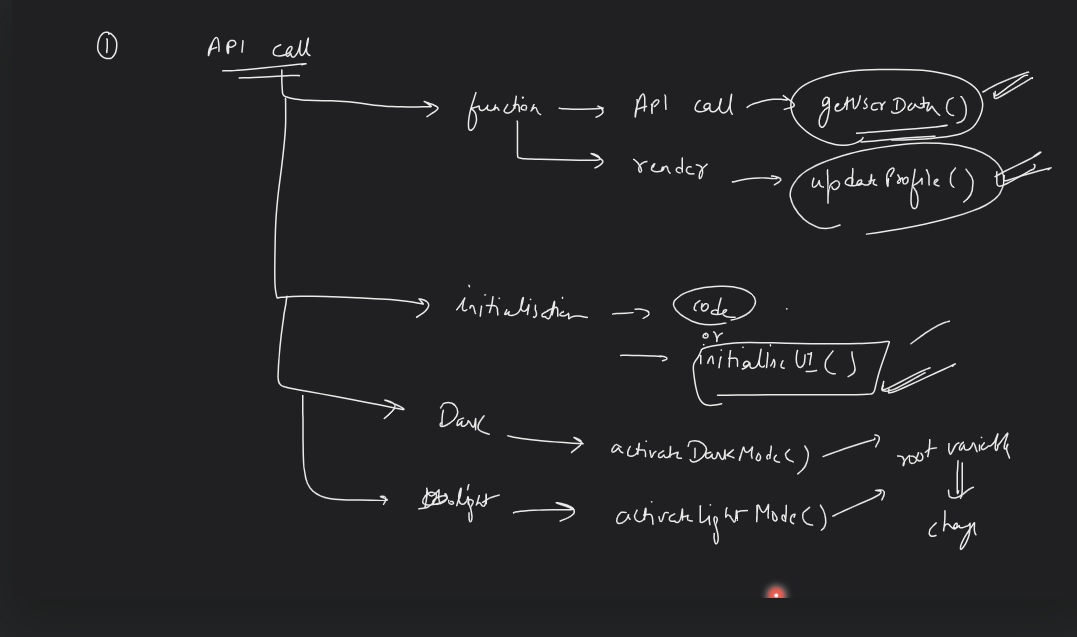 ① API call
function → API call → getUserData()
render → updateProfile()
initialisation → code
or
→ initialise UI()
Dark → activateDarkMode() root variable
light → activateLightMode() change